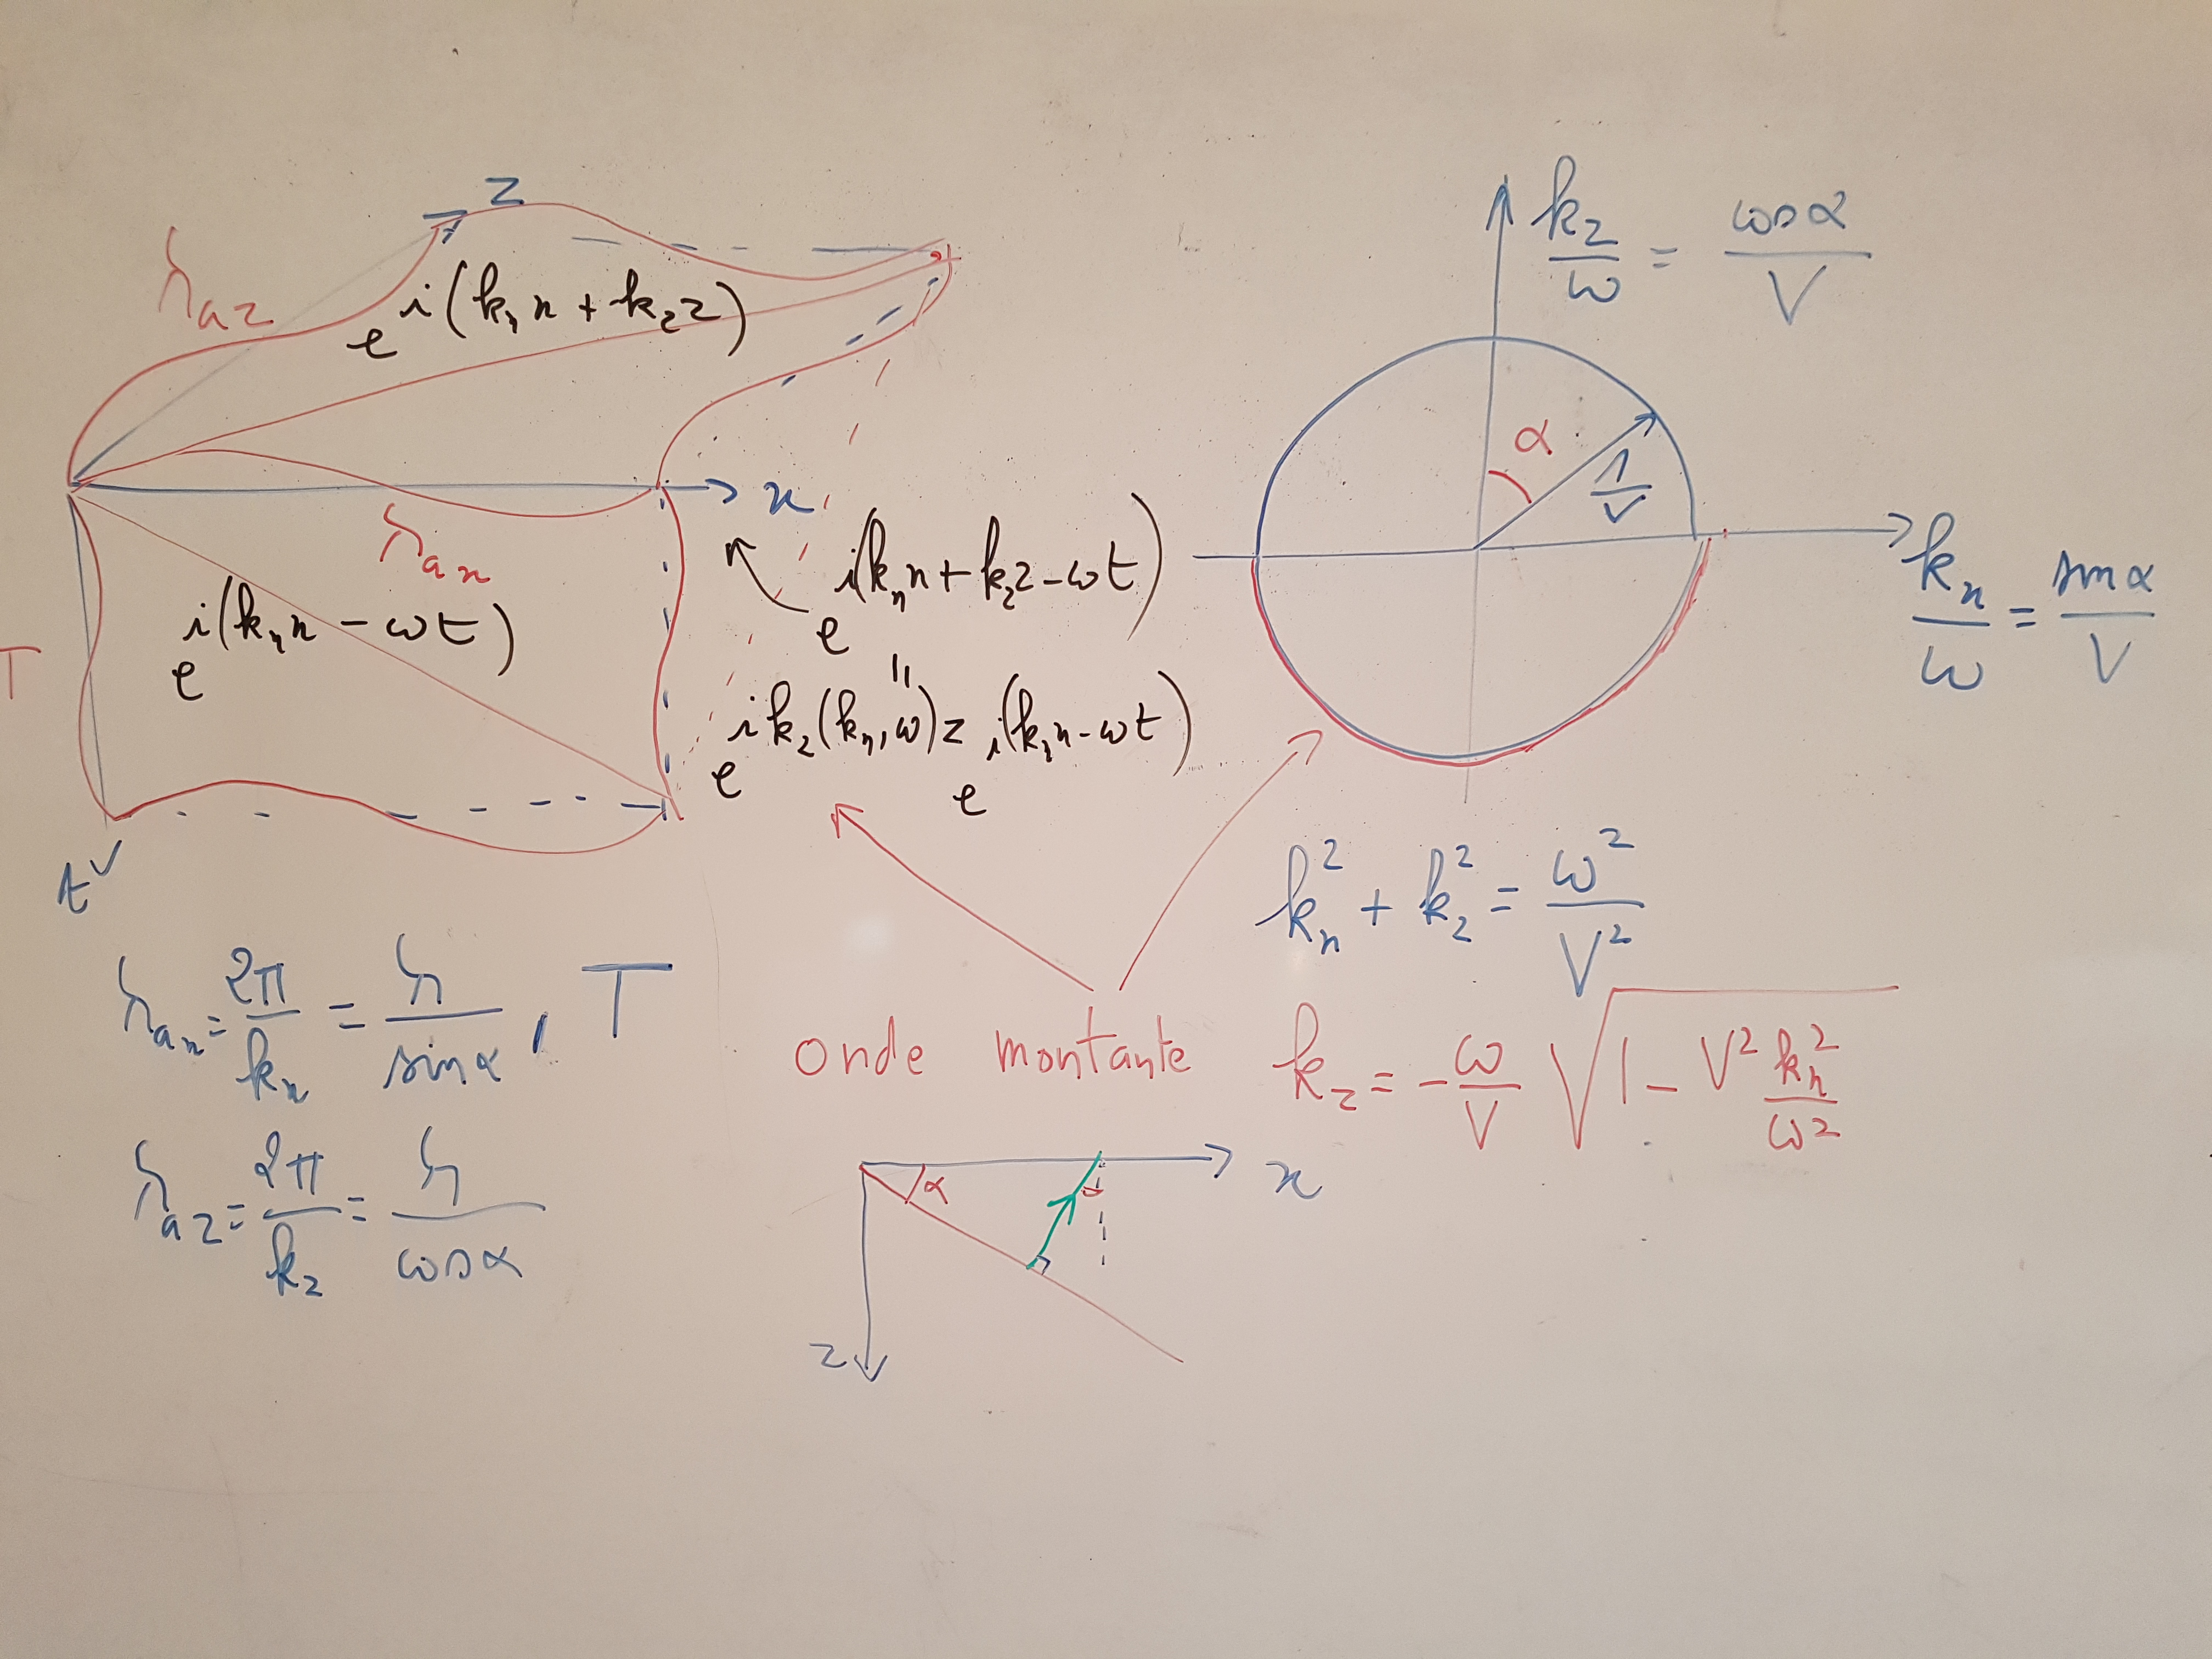 z
λ_az
e^{i(k_x x + k_z z)}
x
λ_ax
e^{i(k_x x - ωt)}
T
t
e^{i(k_x x + k_z z - ωt)}
=
e^{i k_z(k_x, ω) z} e^{i(k_x x - ωt)}
k_z/ω = cos α/V
α
1/V
k_x/ω = sin α/V
k_x^2 + k_z^2 = ω^2/V^2
λ_ax = 2π/k_x = λ/sin α, T
onde montante
k_z = -ω/V √(1 - V^2 k_x^2/ω^2)
λ_az = 2π/k_z = λ/cos α
x
α
z